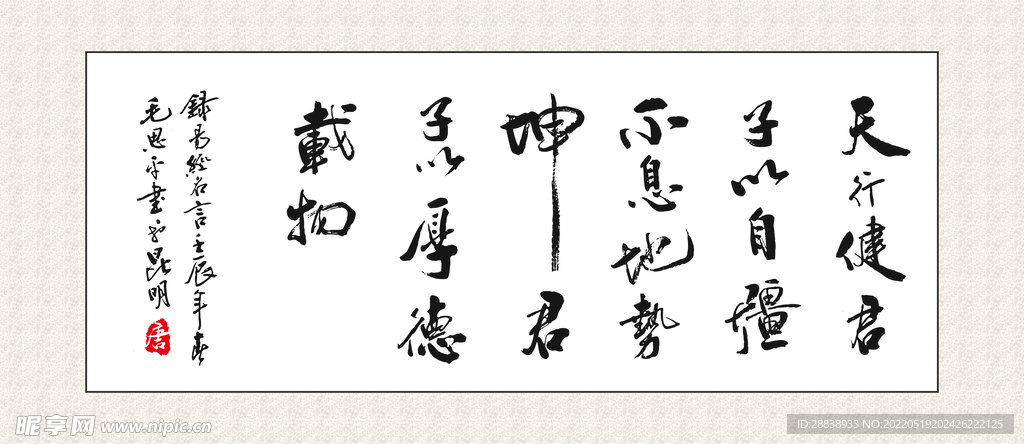 天行健君
子以自疆
不息地勢
坤君
子以厚德
載物
録易經名言壬辰年春
毛思平書於昆明
唐
昵享网 www.nipic.cn
ID:28838933 NO:20220519202426222125